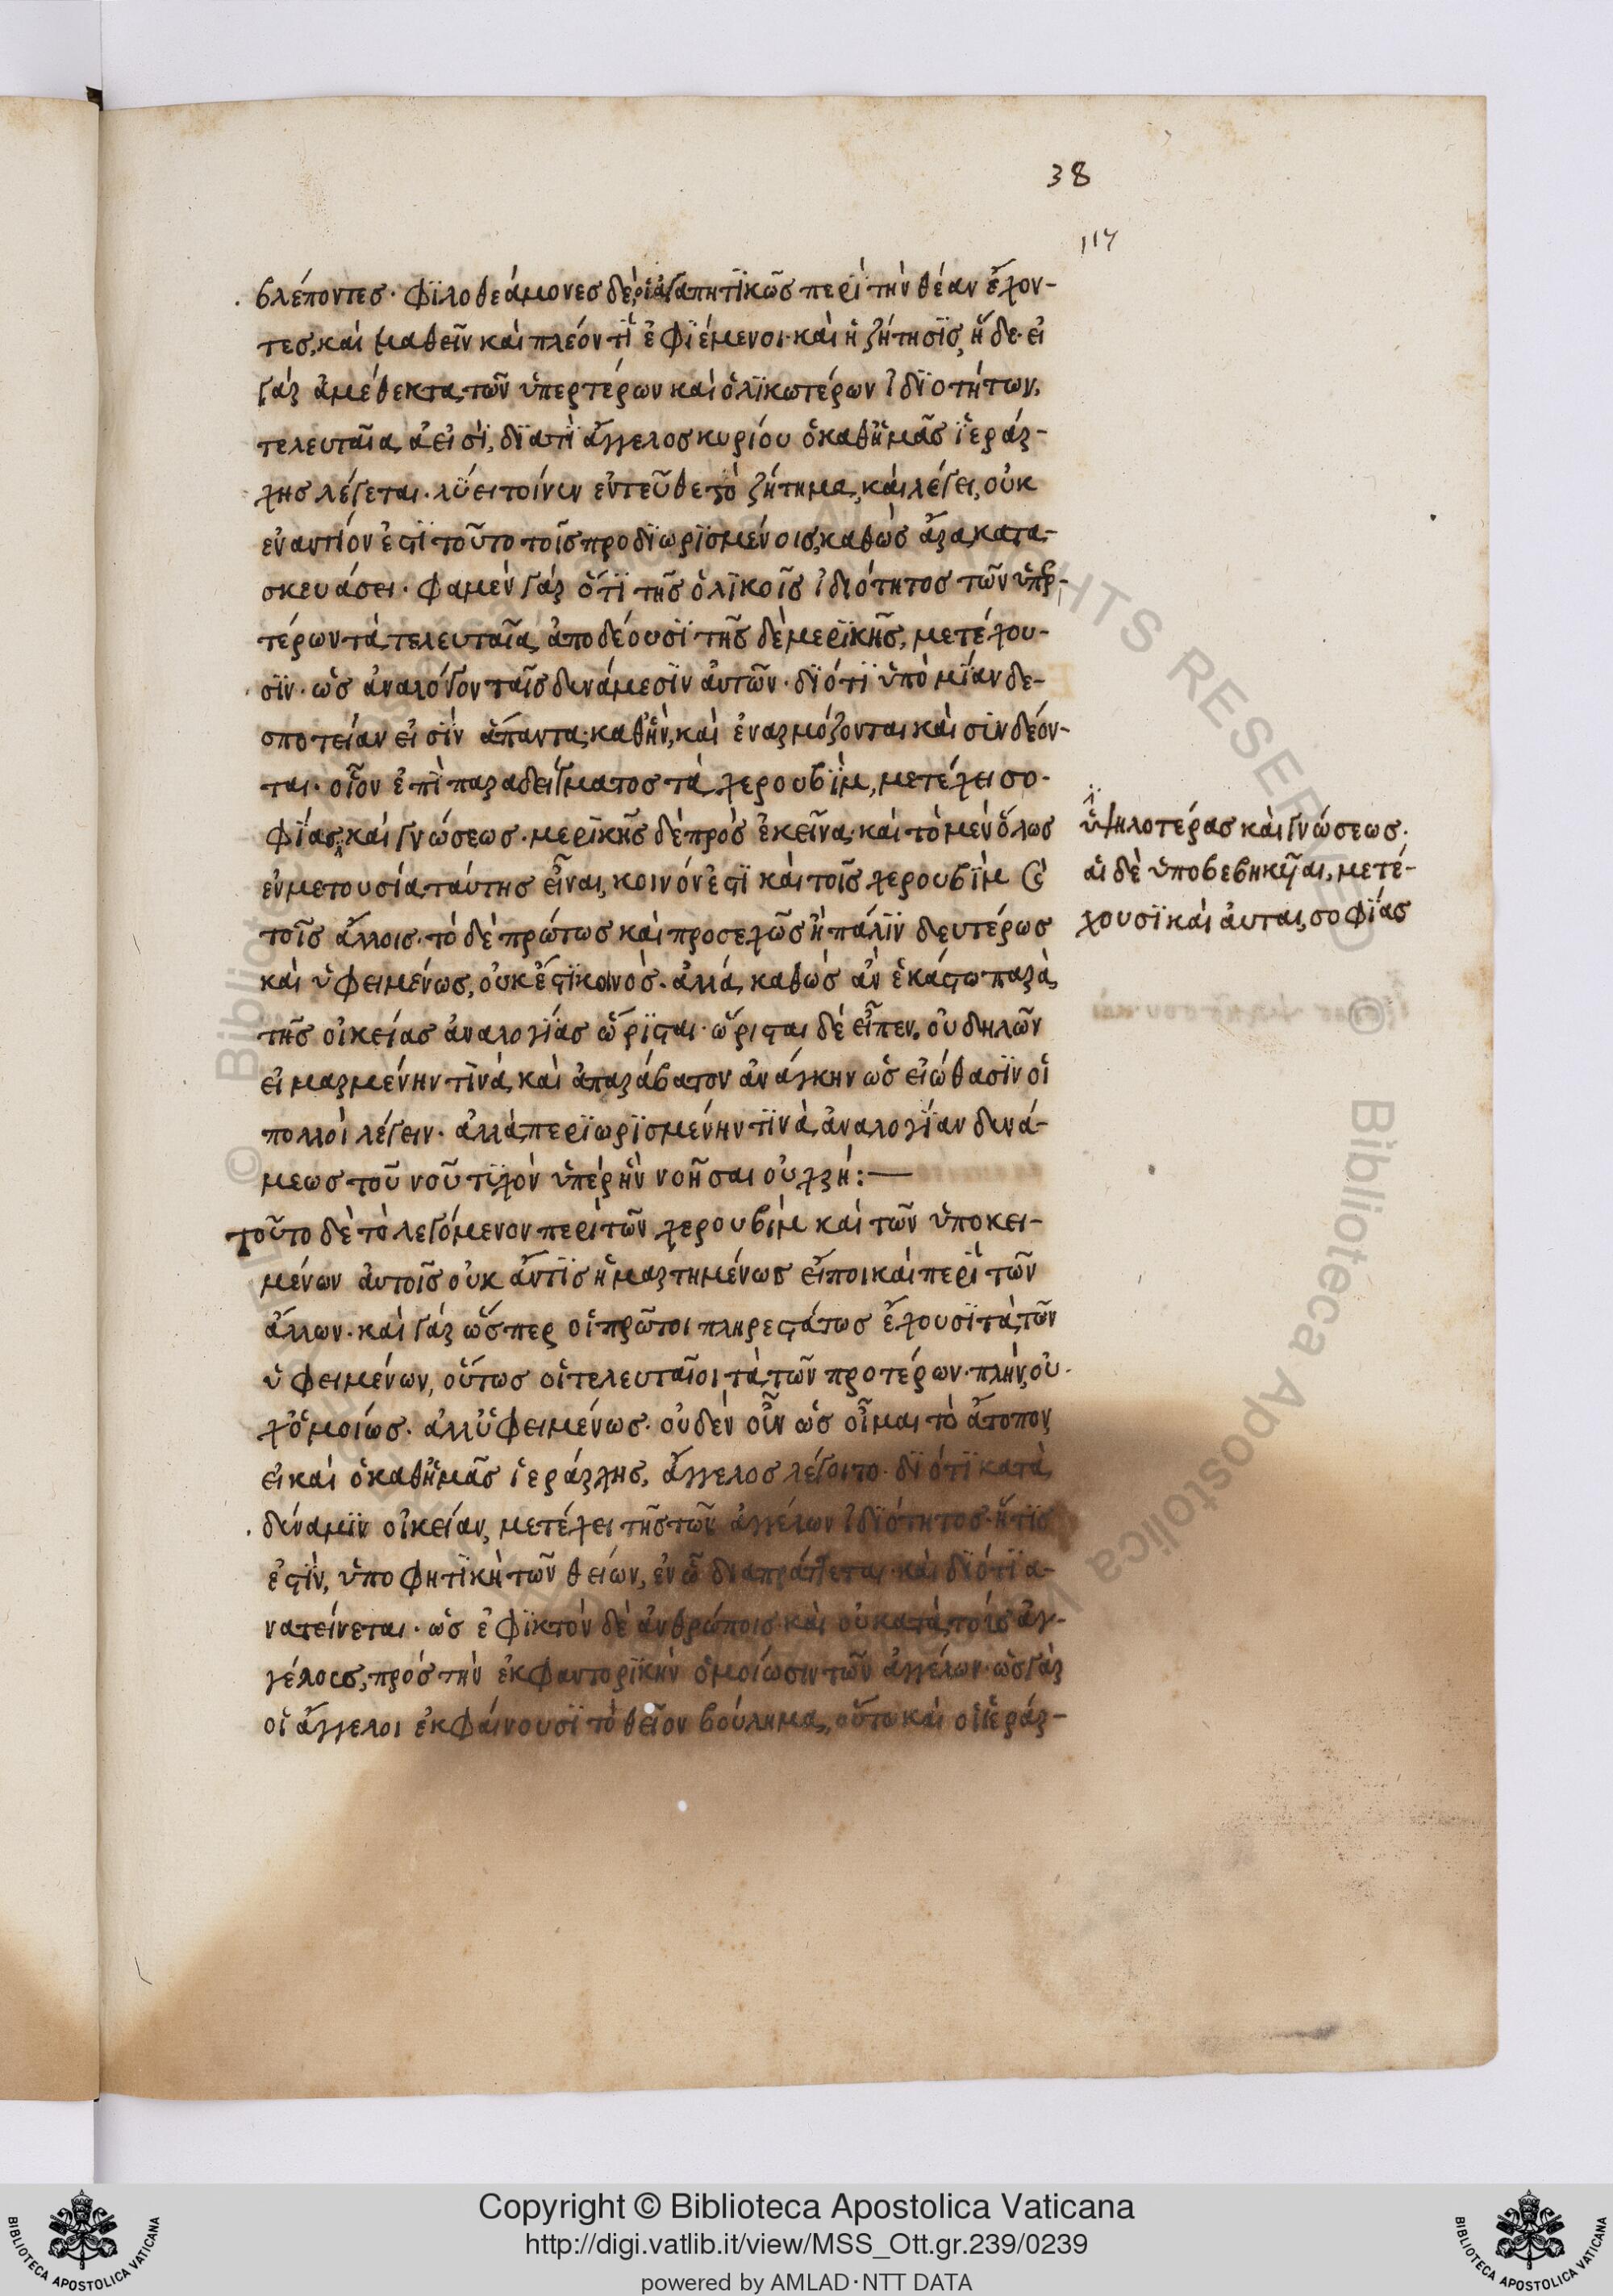 38
114
βλέποντες· φϊλοθεάμονες δὲ, οἱ ἀγαπητϊκῶς περὶ τὴν θέαν ἔχον-
τες, καὶ μαθεῖν καὶ πλέον τὶ ἐφϊέμενοι· καὶ ἡ ζήτησϊς, ἥδε· εἰ
γὰρ ἀμέθεκτα, τῶν ὑπερτέρων καὶ ὁλϊκωτέρων ἰδϊοτήτων,
τελευταῖα, ἀεὶ σϊ, δϊατὶ ἄγγελος κυρίου ὁ καθ' ἡμᾶς ϊεράρ-
χης λέγεται· λύει τοίνυν ἐντεῦθε τὸ ζήτημα, καὶ λέγει, οὐκ
ἐναντίον ἐστὶ τοῦτο τοῖς προδϊωρϊσμένοις, καθὼς ἄρα, κατα-
σκευάσει· φαμὲν γὰρ ὅτϊ τῆς ὁλϊκοῖς ἰδιότητος τῶν ὑπερ-
τέρων τὰ τελευταῖα, ἀποδέουσϊ τῆς δὲ μερϊκῆς, μετέχου-
σϊν· ὡς ἀναλόγον ταῖς δυνάμεσϊν ἀυτῶν· δϊότϊ ὑπὸ μϊαν δε-
σποτείαν εἰσϊν ἅπαντα· καθ' ἣν, καὶ ἐναρμόζονται καὶ συνδέον-
ται· οἷον ἐπὶ παραδείγματος τὰ χερουβὶμ, μετέχει σο-
φϊας, καὶ γνώσεως· μερϊκῆς δὲ πρὸς ἐκεῖνα· καὶ τὸ μὲν ὅλως
ἐν μετουσία ταύτης εἶναι, κοινόν ἐστϊ καὶ τοῖς χερουβὶμ καὶ
τοῖς ἄλλοις· τὸ δὲ πρώτως καὶ προσεχῶς ἢ πάλϊν δευτέρως
καὶ ὑφειμένως, οὐκ ἔστϊ κοινὸς· ἀλλὰ, καθὼς ἀν ἑκάστω παρὰ
τῆς οἰκείας ἀναλογϊας ὥρϊσται· ὥρισται δὲ εἶπεν, οὐ δηλῶν
εἱμαρμένην τϊνὰ, καὶ ἀπαράβατον ἀνάγκην ὡς εἰώθασϊν οἱ
πολλοὶ λέγειν· ἀλλὰ, περϊωρϊσμένην τϊνὰ, ἀναλογϊαν δυνά-
μεως τοῦ νοῦ τϊχὸν ὑπὲρ ἣν νοῆσαι οὐ χρή:—
τοῦτο δὲ τὸ λεγόμενον περὶ τῶν χερουβὶμ καὶ τῶν ὑποκει-
μένων ἀυτοῖς οὐκ ἄν τϊς ἡμαρτημένως εἴποι καὶ περὶ τῶν
ἄλλων· καὶ γὰρ ὥσπερ οἱ πρῶτοι πληρεστάτως ἔχουσϊ τὰ, τῶν
ὑφειμένων, οὕτως οἱ τελευταῖοι τὰ, τῶν προτέρων· πλὴν, οὐ-
χ' ὁμοίως· ἀλλ' ὑφειμένως· οὐδὲν οὖν ὡς οἶμαι τὸ ἄτοπον
εἰ καὶ ὁ καθ' ἡμᾶς ἱεράρχης, ἄγγελος λέγοιτο· δϊότϊ κατὰ,
δύναμϊν οἰκείαν, μετέχει τῆς τῶν ἀγγέλων ἰδϊότητος· ἥτϊς
ἐστὶν, ὑποφητϊκὴ τῶν θείων, ἐν ᾧ διαπράττεται καὶ δϊότϊ ἀ-
νατείνεται· ὡς ἐφϊκτὸν δὲ ἀνθρώποις καὶ οὐ κατὰ, τοῖς ἀγ-
γέλοις, πρὸς τὴν ἐκφαντορϊκὴν ὁμοίωσιν τῶν ἀγγέλων· ὡς γὰρ
οἱ ἄγγελοι ἐκφαίνουσϊ τὸ θεῖον βούλημα, οὕτω καὶ οἱ ἱεράρ-
ὑψηλοτέρας καὶ γνώσεως·
ἁι δὲ ὑποβεβηκῆαι, μετέ-
χουσϊ καὶ ἀυται, σοφϊας
Copyright © Biblioteca Apostolica Vaticana
http://digi.vatlib.it/view/MSS_Ott.gr.239/0239
powered by AMLAD·NTT DATA
BIBLIOTECA APOSTOLICA VATICANA
BIBLIOTECA APOSTOLICA VATICANA